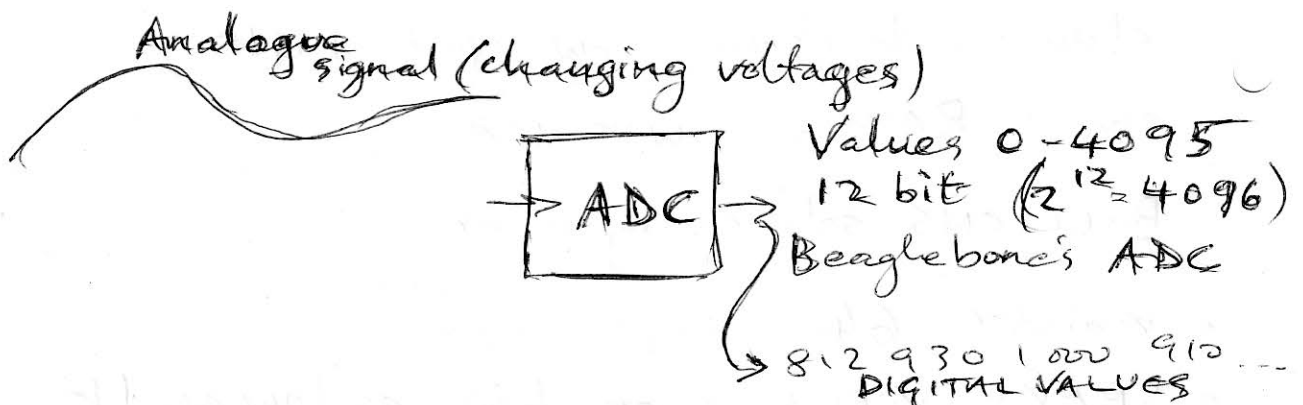 Analogue
signal (changing voltages)
Values 0-4095
12 bit (2^12 = 4096)
ADC
Beaglebone's ADC
812 930 1000 910 ...
DIGITAL VALUES